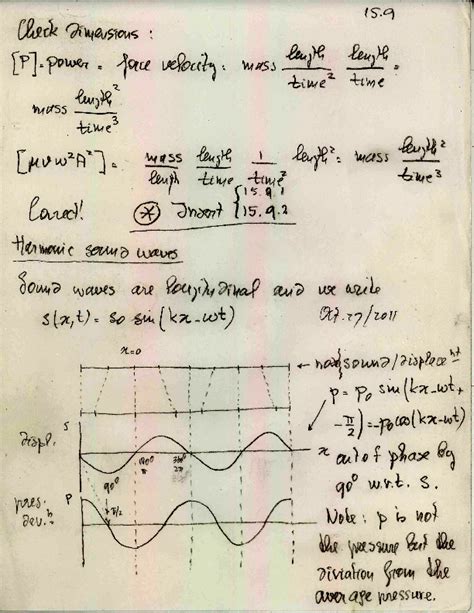 15.9
Check dimensions :
[P] = power = force velocity = mass length/time² length/time =
mass length²/time³
[μvω²A²] = mass/length length/time 1/time² length² = mass length²/time³
⊛ Insert { 15.9.1
15.9.2
Harmonic sound waves
Sound waves are longitudinal and we write
s(x,t) = s₀ sin(kx-ωt) Oct. 27/2011
x=0
← no sound/displace nt
p = p₀ sin(kx-ωt +
- π/2) = -p₀ cos(kx-ωt)
displ. S
x
out of phase by
90° w.r.t. S.
180° π
360° 2π
90°
π/2
pres. dev.n P
Note: p is not
the pressure but the
diviation from the
average pressure.